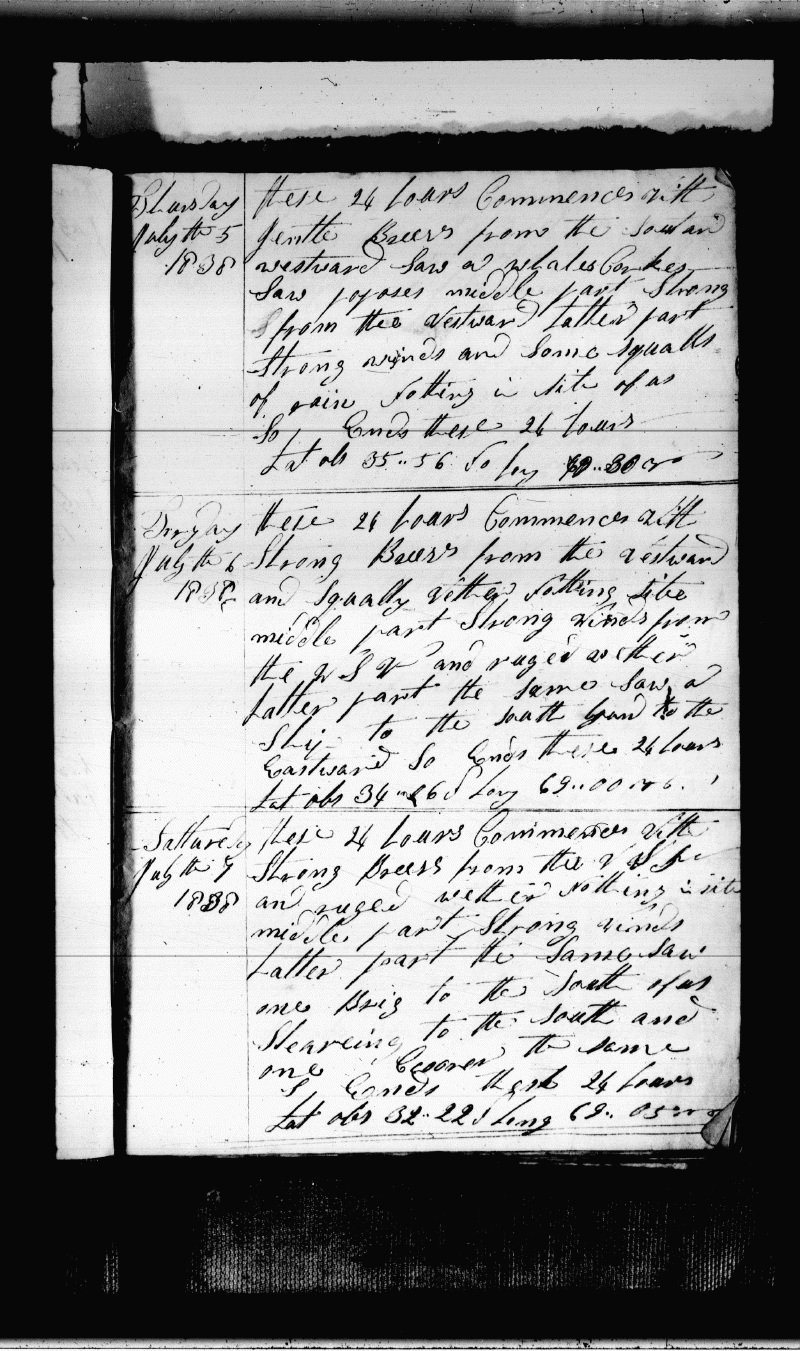 Thursday these 24 hours Commences with
July th 5 gentle Breess from the Sou and
1838 westward Saw a whales Carkes
Saw poposes middle part Strong
from thee Westward Latter part
Strong winds and Some Squalls
of rain Nothing in site of us
So Ends these 24 hours
Lat obs 35..56 So long
Fryday these 24 hours Commences with
July th 6 Strong Breess from the Westward
1838 and Squally wether Nothing Site
middle part Strong Winds from
the W S W and ruged wether
Latter part the same Saw a
Ship to the south bound to the
Eastward So Ends these 24 hours
Lat obs 34 26 S Long 69..00
Satturdy these 24 hours Commences with
July th 7 Strong Breess from the W S
1838 and ruged wether Nothing in site
middle part Strong winds
Latter part the Same Saw
one Brig to the South of us
Steareing to the South and
one the same
S Ends these 24 hours
Lat obs 32..22 S Long 69.. 05